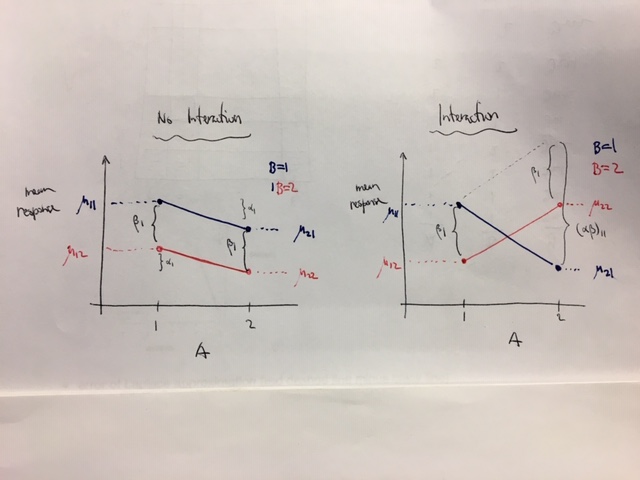 No Interaction
mean
response
μ11
μ12
β1
α1
β1
α1
μ21
μ22
B=1
B=2
1
2
A
Interaction
mean
response
μ11
μ12
β1
β1
(αβ)11
μ22
μ21
B=1
B=2
1
2
A